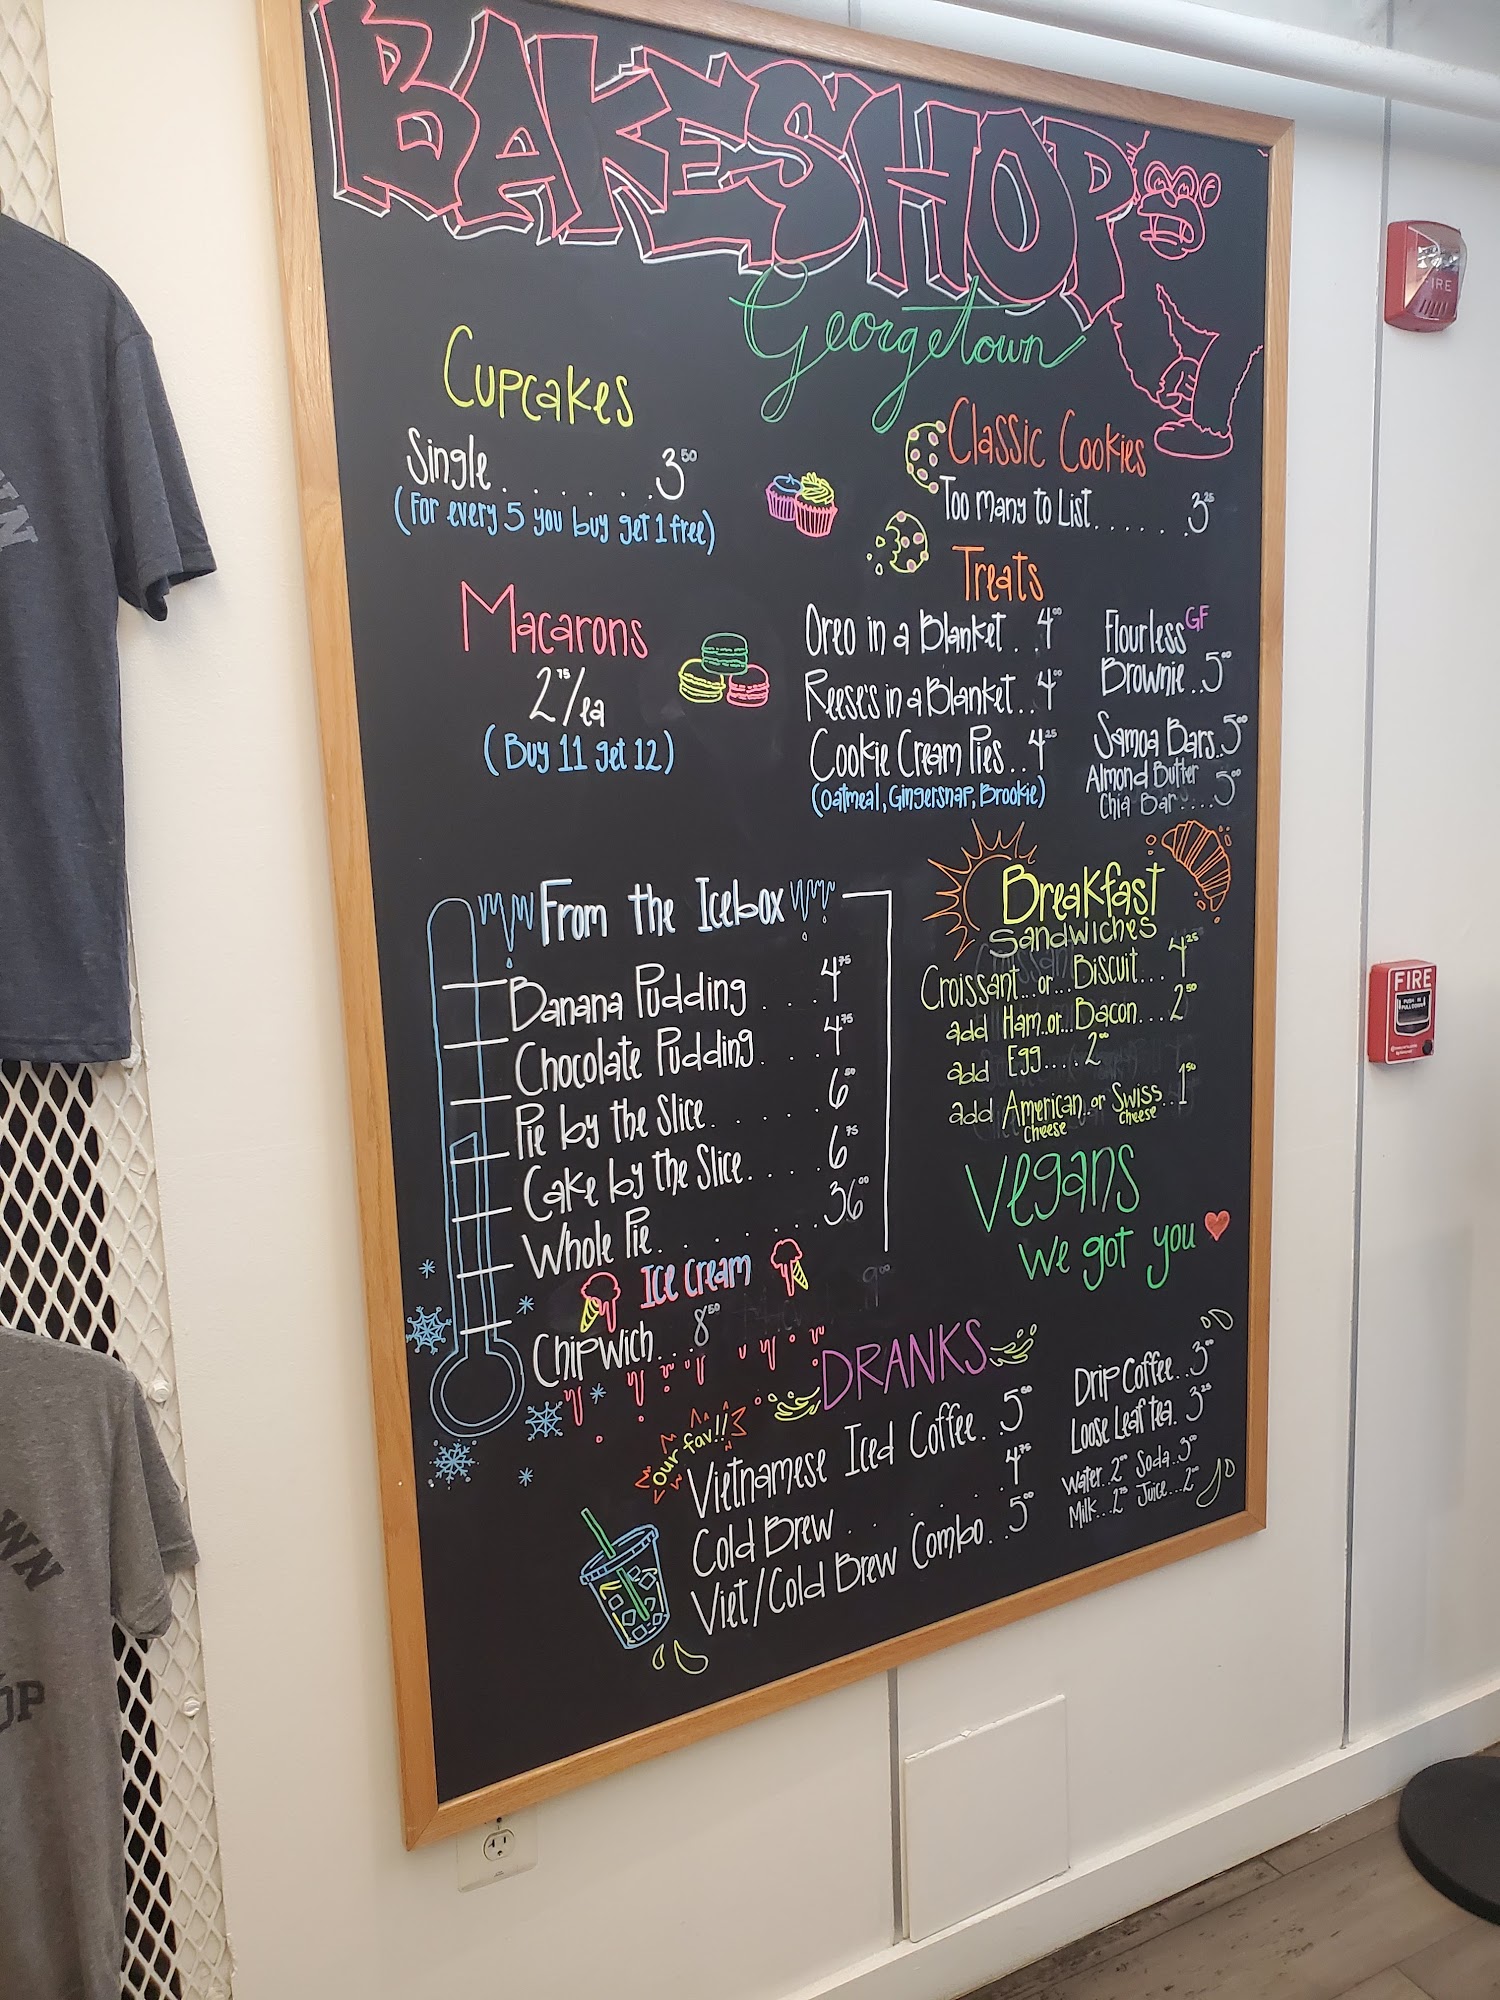 BAKESHOP
Georgetown
Cupcakes
Single.......3 50
(For every 5 you buy get 1 free)
Macarons
2 75/ea
(Buy 11 get 12)
Classic Cookies
Too Many to List......3 25
Treats
Oreo in a Blanket..4 00
Reese's in a Blanket..4 00
Cookie Cream Pies..4 25
(Oatmeal, Gingersnap, Brookie)
Flourless GF
Brownie..5 00
Samoa Bars..5 00
Almond Butter
Chia Bar....5 00
From the Icebox
Banana Pudding....4 75
Chocolate Pudding....4 75
Pie by the Slice......6 50
Cake by the Slice.....6 75
Whole Pie........36 00
Ice Cream
Chipwich...8 50
Breakfast
Sandwiches
Croissant...or...Biscuit...4 25
add Ham..or...Bacon...2 50
add Egg....2 00
add American..or Swiss..1 50
Cheese Cheese
Vegans
We got you
DRANKS
our fav!!
Vietnamese Iced Coffee..5 50
Cold Brew........4 75
Viet/Cold Brew Combo..5 00
Drip Coffee..3 00
Loose Leaf Tea.3 25
Water..2 00 Soda..3 00
Milk...2 75 Juice...2 00
FIRE
FIRE
WN
OP